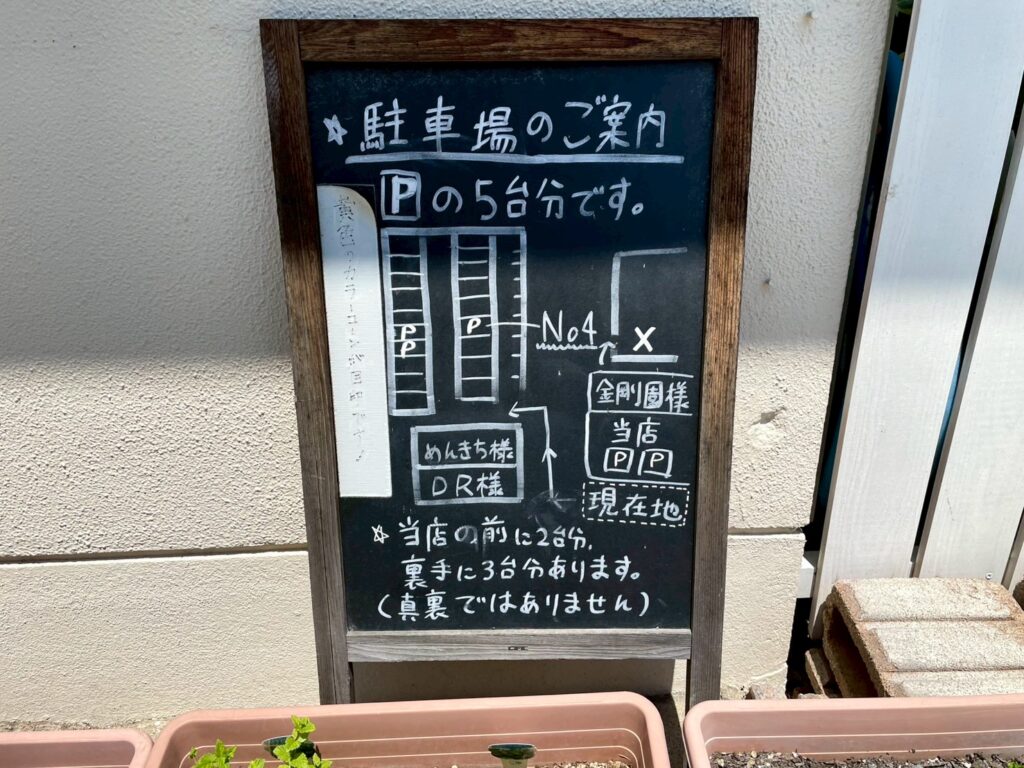 ☆駐車場のご案内
Pの5台分です。
黄色のカラーコーンが目印です♪
P
P
P
No4
X
金剛園様
当店
P P
めんきち様
DR様
現在地
☆当店の前に2台分、
裏手に3台分あります。
(真裏ではありません)